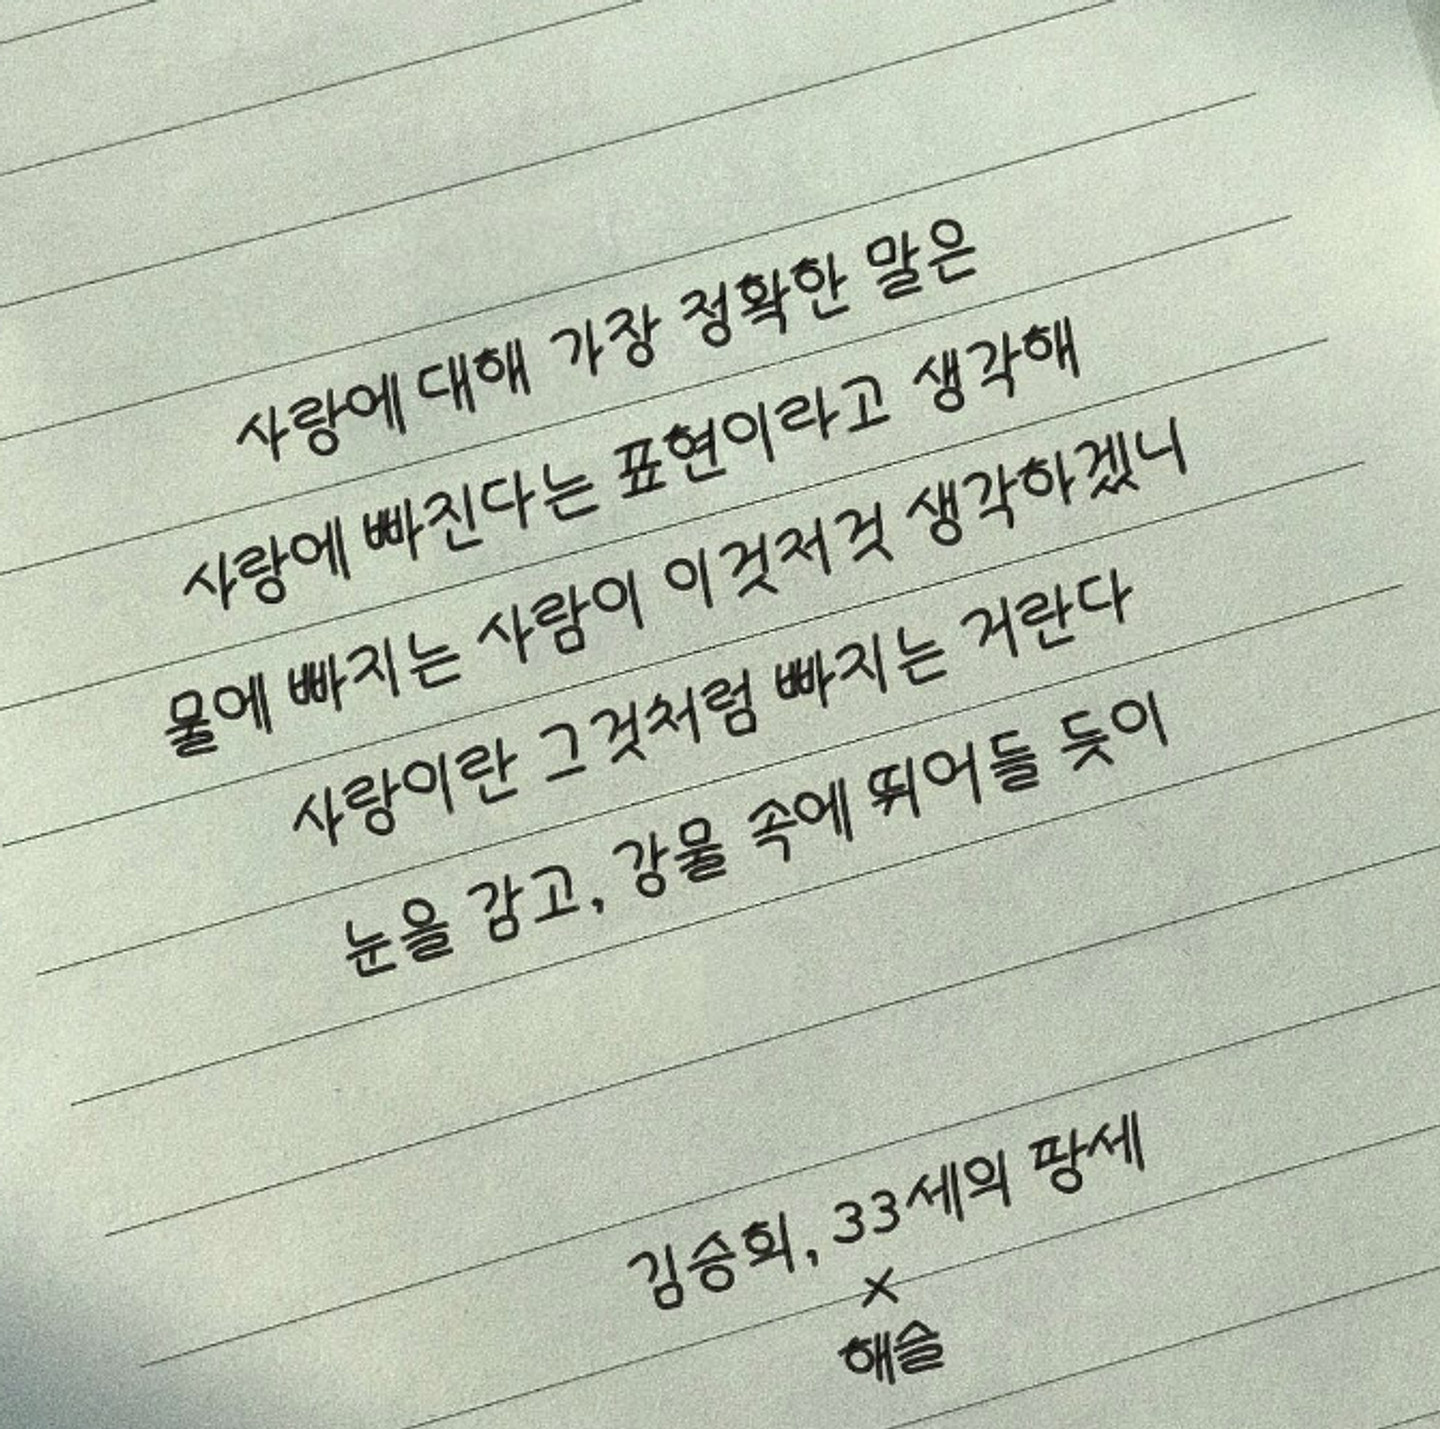 사랑에 대해 가장 정확한 말은
사랑에 빠진다는 표현이라고 생각해
물에 빠지는 사람이 이것저것 생각하겠니
사랑이란 그것처럼 빠지는 거란다
눈을 감고, 강물 속에 뛰어들 듯이
김승회, 33세의 팡세
×
해슬